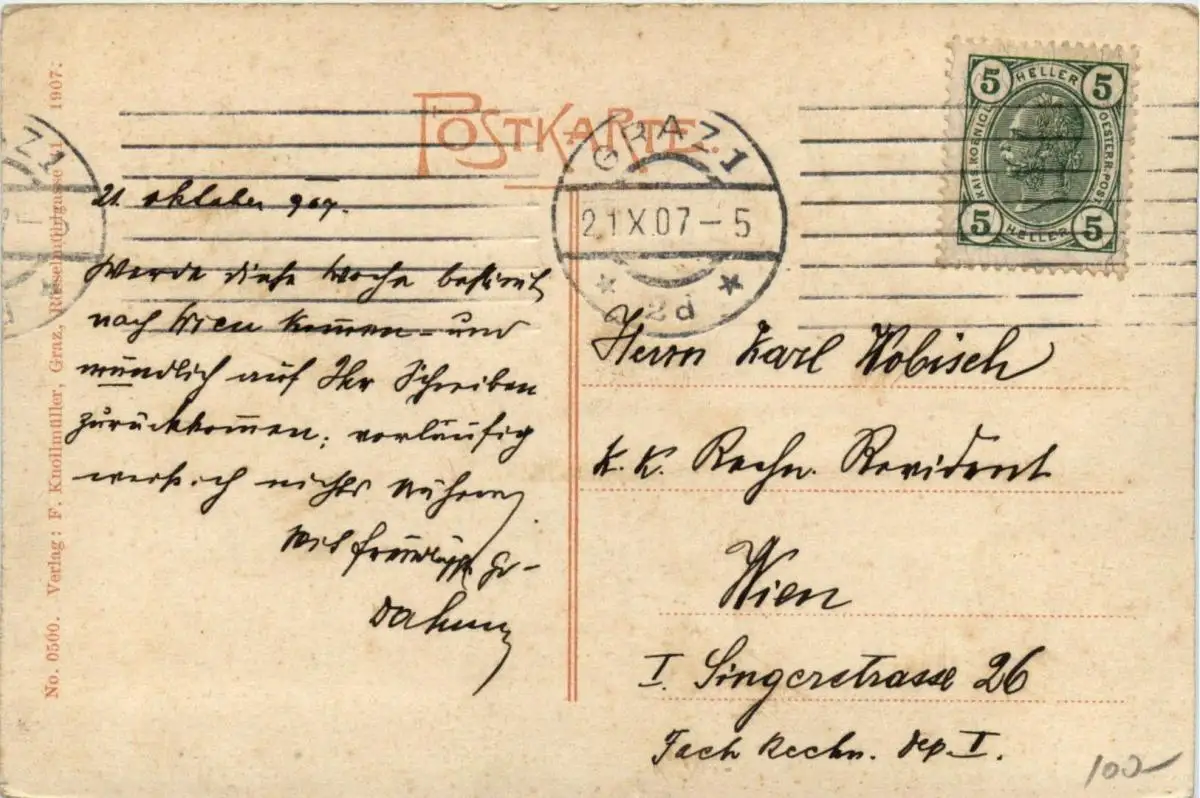 POSTKARTE.
GRAZ 1
21 X 07 - 5
* 2d *
5 HELLER 5
KAIS. KOENIGL. OESTERR. POST
5 HELLER 5
21. Oktober 907.
Werde diese Woche bestim̅t
nach Wien kom̅en – und
mündlich auf Ihr Schreiben
zurückkom̅en; vorläufig
weiß ich nichts Näheres
Mit
Herrn Karl Wobisch
K. K. Rechn. Revident
Wien
I. Singerstrasse 26
Fach Rechn. Dep. I.
No. 0500. Verlag: F. Knollmüller, Graz, 1907.
100–